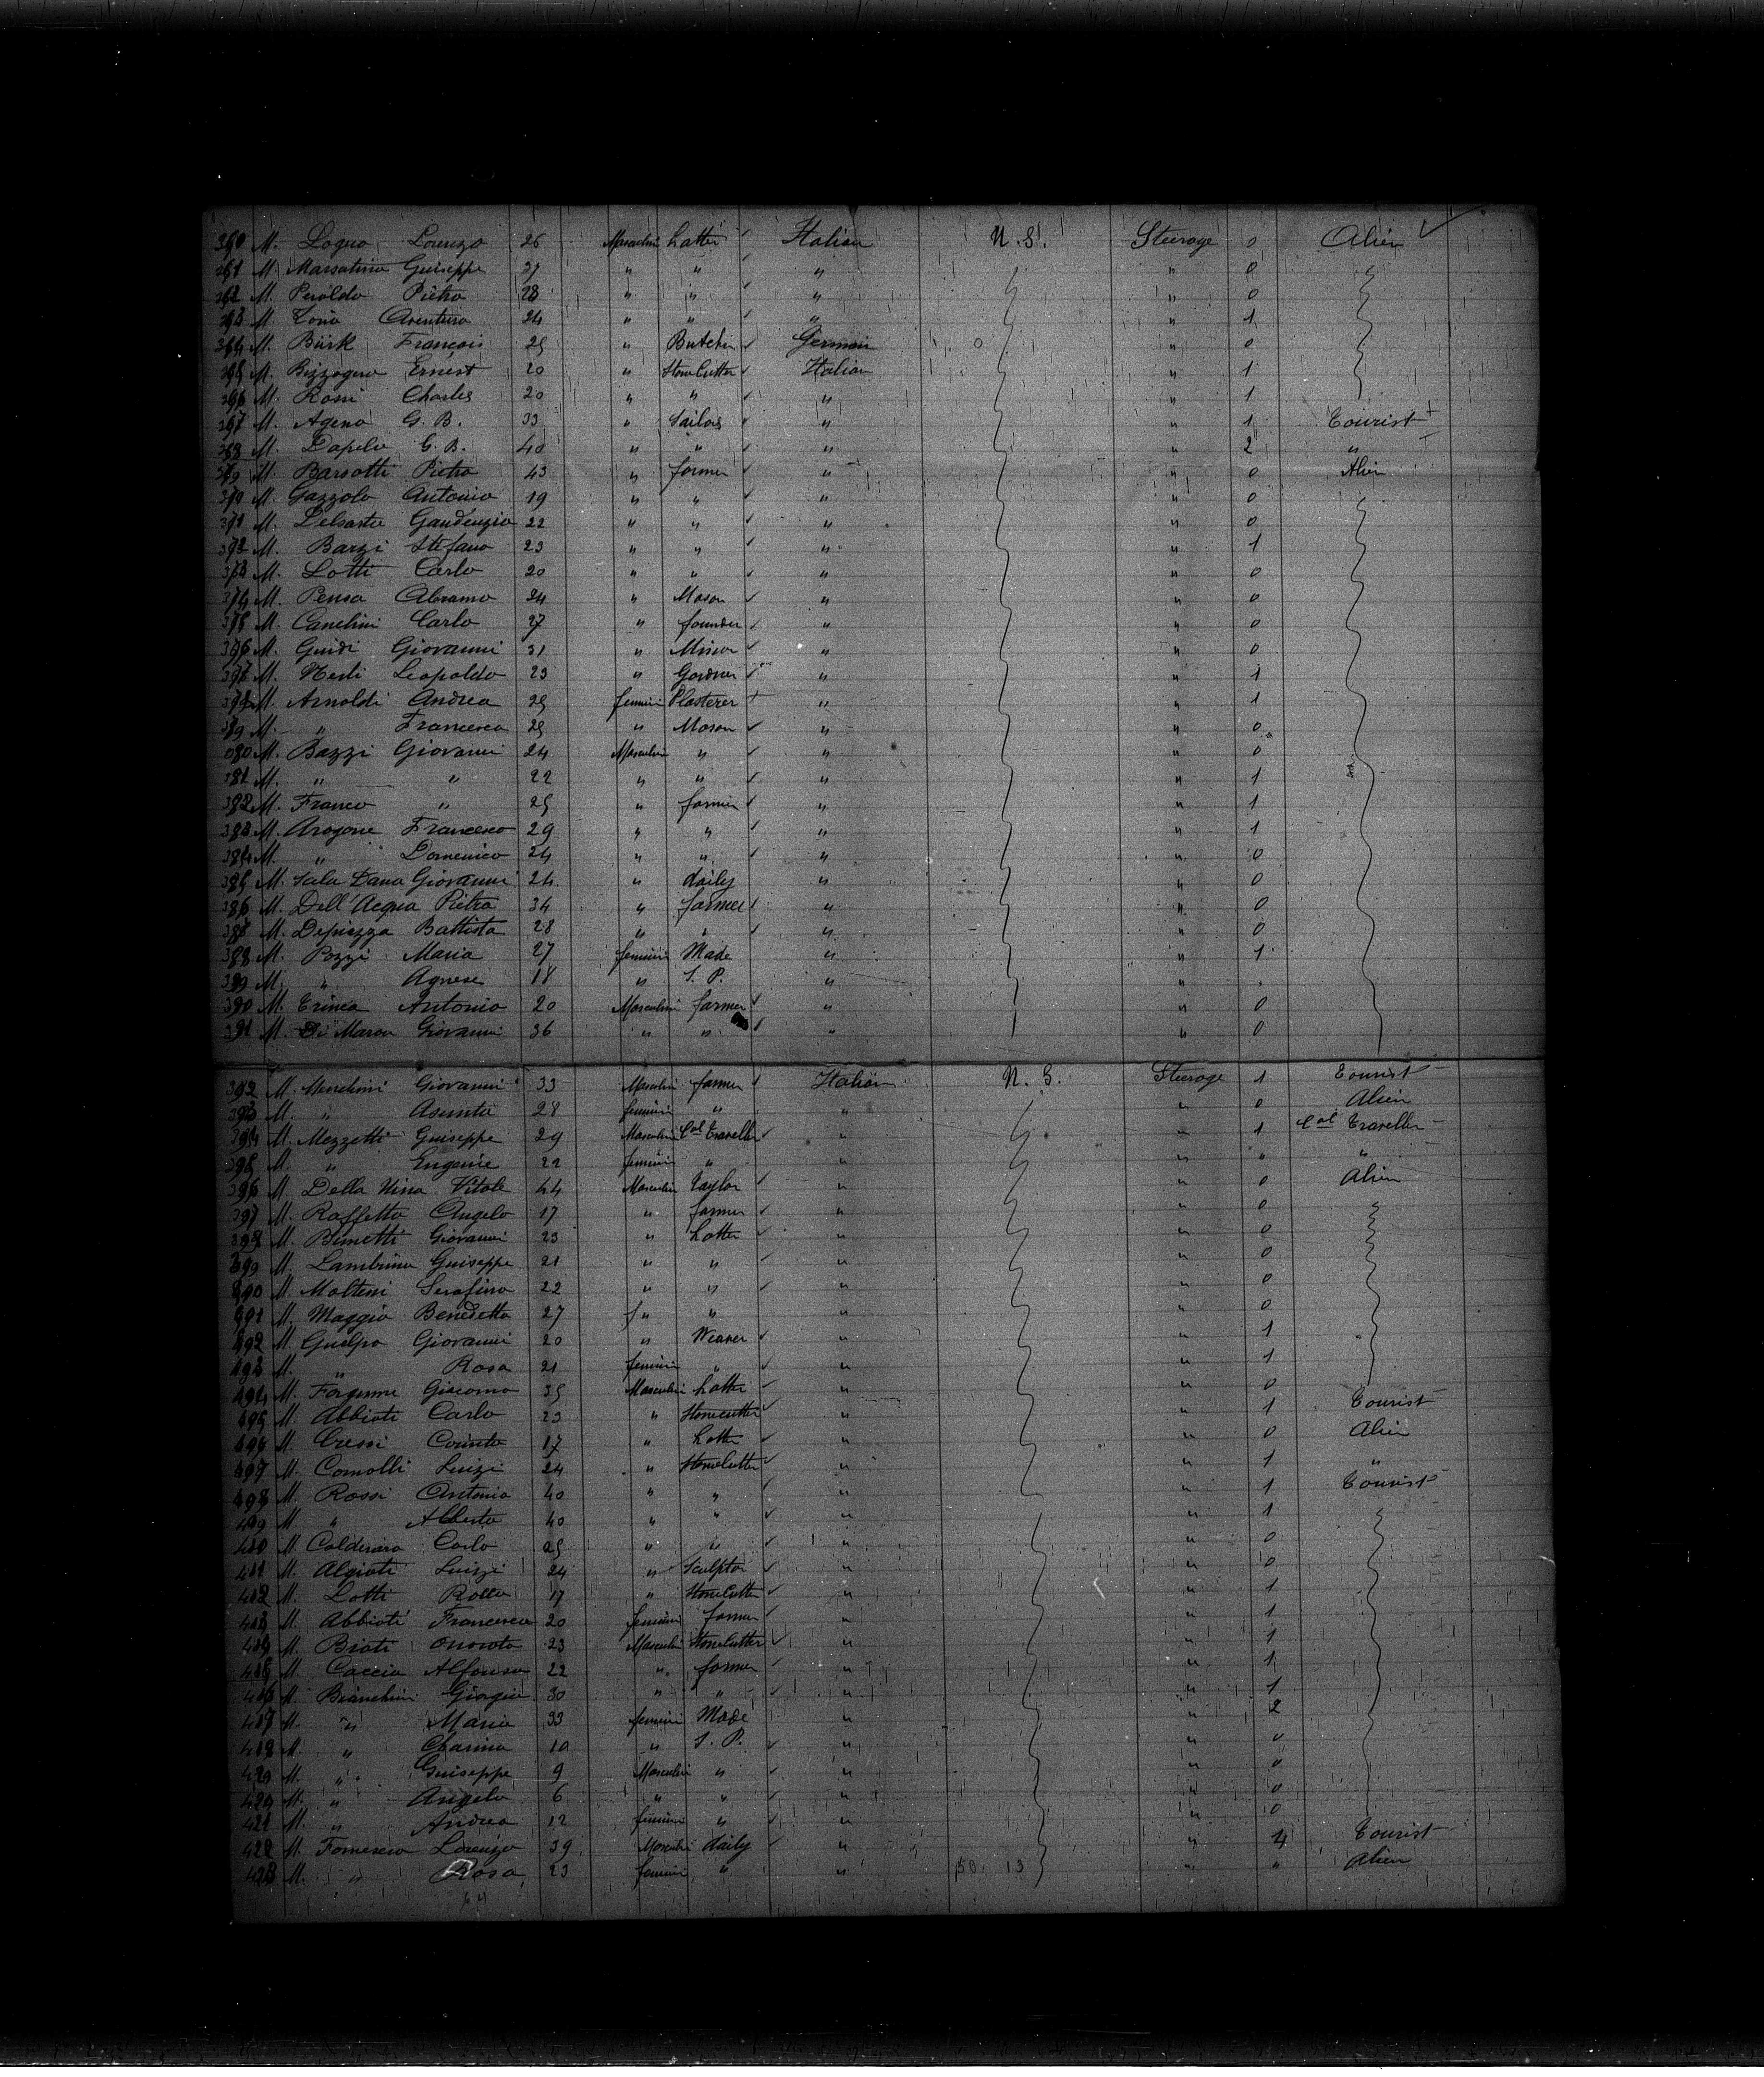 M. Logno Lorenzo 26 Masculin hatter Italian U.S. Steerage 0 Alien
M. Massatina Guiseppe 27 " " " " 0
M. Peroldo Pietro 28 " " " " 0
M. Aventura 24 " " " " 1
M. Bürk François 25 " Butcher German " 0
M. Bizzogero Ernest 20 " Stone Cutter Italian " 1
M. Rossi Charles 20 " " " " 1
367 M. Ageno G. B. 33 " Sailor " " 1 Tourist
M. Dapelo G. B. 40 " " " " 2 "
M. Barsotti Pietro 43 " farmer " " 0 Alien
M. Gazzolo Antonio 19 " " " " 0
371 M. Delsarte Gaudenzio 22 " " " " 0
372 M. Barzi Stefano 23 " " " " 1
M. Lotti Carlo 20 " " " " 0
374 M. Pensa Abramo 24 " Mason " " 0
375 M. Canchini Carlo 27 " founder " " 0
376 M. Guidi Giovanni 31 " " " 0
377 M. Nerli Leopoldo 23 " Gardner " " 1
M. Arnoldi Andrea 25 feminin Plasterer " " 1
379 M. " Francesca 25 " Mason " " 0
380 M. Bazzi Giovanni 24 Masculin " " " 0
381 M. " " 22 " " " " 1
382 M. Franco " 25 " farmer " " 1
383 M. Aragone Francesco 29 " " " " 1
384 M. " Domenico 24 " " " " 0
385 M. Sala Dana Giovanni 24 " daily " " 0
386 M. Dell'Acqua Pietro 34 " farmer " " 0
387 M. Depiazza Battista 28 " " " " 0
388 M. Pozzi Maria 27 feminin Made " " 1
389 M. " Agnese 18 " S. P. " "
M. Antonio 20 Masculin farmer " " 0
M. Di Marco Giovanni 36 " " " " 0
392 M. Menchini Giovanni 33 Masculin farmer Italian U. S. Steerage 1 Tourist
393 M. " Asunta 28 feminin " " " 0 Alien
394 M. Mezzetti Guiseppe 29 Masculin Cal Traveller " " 1 Cal Traveller
395 M. " Eugenie 22 feminin " " " " "
396 M. Della Nina Vitale 44 Masculin Taylor " " 0 Alien
397 M. Raffetto Angelo 17 " farmer " " 0
398 M. Bometti Giovanni 23 " hatter " " 0
399 M. Lambrina Guiseppe 21 " " " " 0
M. Molteni Serafino 22 " " " " 0
M. Maggio Benedetto 27 " " " " 0
M. Guelpa Giovanni 20 " Weaver " " 1
M. " Rosa 21 feminin " " " 1
M. Giacomo 35 Masculin hatter " " 0
M. Abbiati Carlo 23 " Stonecutter " " 1 Tourist
M. Cressi 17 " hatter " " 0 Alien
M. Comolli Luigi 24 " Stonecutter " " 1 "
M. Rossi Antonio 40 " " " " 1 Tourist
M. " Alberto 40 " " " " 1
M. Calderara Carlo 25 " " " " 0
M. Algiati Luigi 24 " Sculptor " " 0
M. Lotti 17 " Stonecutter " " 1
M. Abbiati Francesca 20 feminin farmer " " 1
M. Biati Onorato 23 Masculin Stonecutter " " 1
M. Caccia Alfonso 22 " farmer " " 1
M. Bianchini Giorgio 30 " " " " 1
M. " Maria 33 feminin Made " " 2
M. " Clarina 10 " S. P. " " 0
M. " Guiseppe 9 Masculin " " " 0
M. " Angelo 6 " " " " 0
M. " Andrea 12 feminin " " " 0
M. Lorenzo 39 Masculin daily " " 4 Tourist
M. " Rosa 23 feminin " " 50 13 " " Alien
64